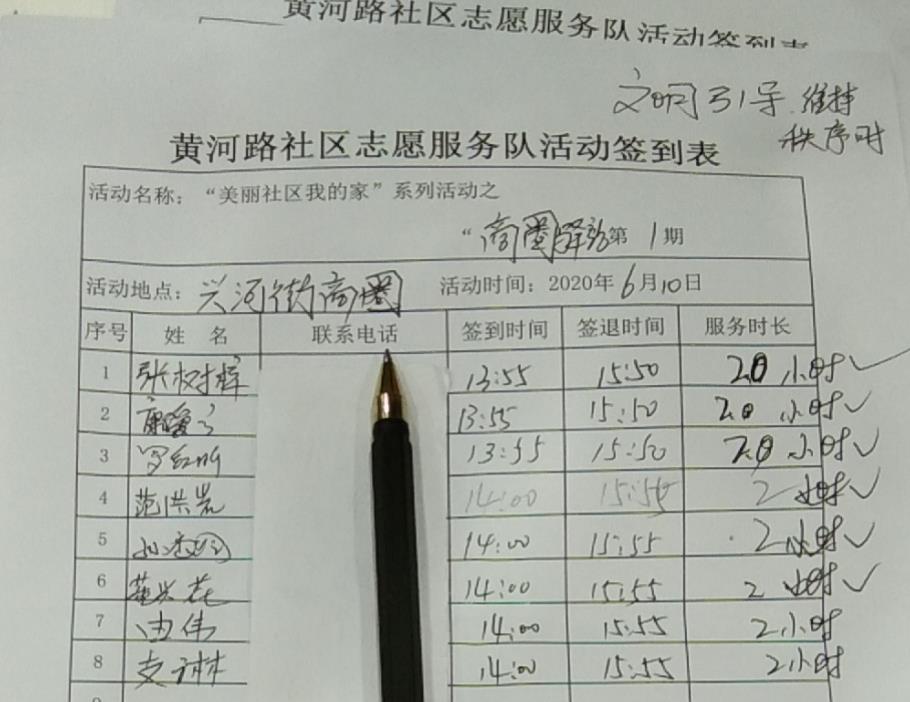 黄河路社区志愿服务队活动签到表
文明引导.维持
秩序时
黄河路社区志愿服务队活动签到表
活动名称：“美丽社区我的家”系列活动之
“商圈驿站第1期
活动地点：兴河街商圈 活动时间：2020年6月10日
序号 姓 名 联系电话 签到时间 签退时间 服务时长
1 张树辉 13:55 15:50 2.0 小时√
2 13:55 15:50 2.0 小时√
3 罗红 13:55 15:50 2.0 小时√
4 范洪岩 14:00 15:55 2 小时√
5 14:00 15:55 2小时√
6 14:00 15:55 2 小时√
7 由伟 14:00 15:55 2小时
8 支琳 14:00 15:55 2小时